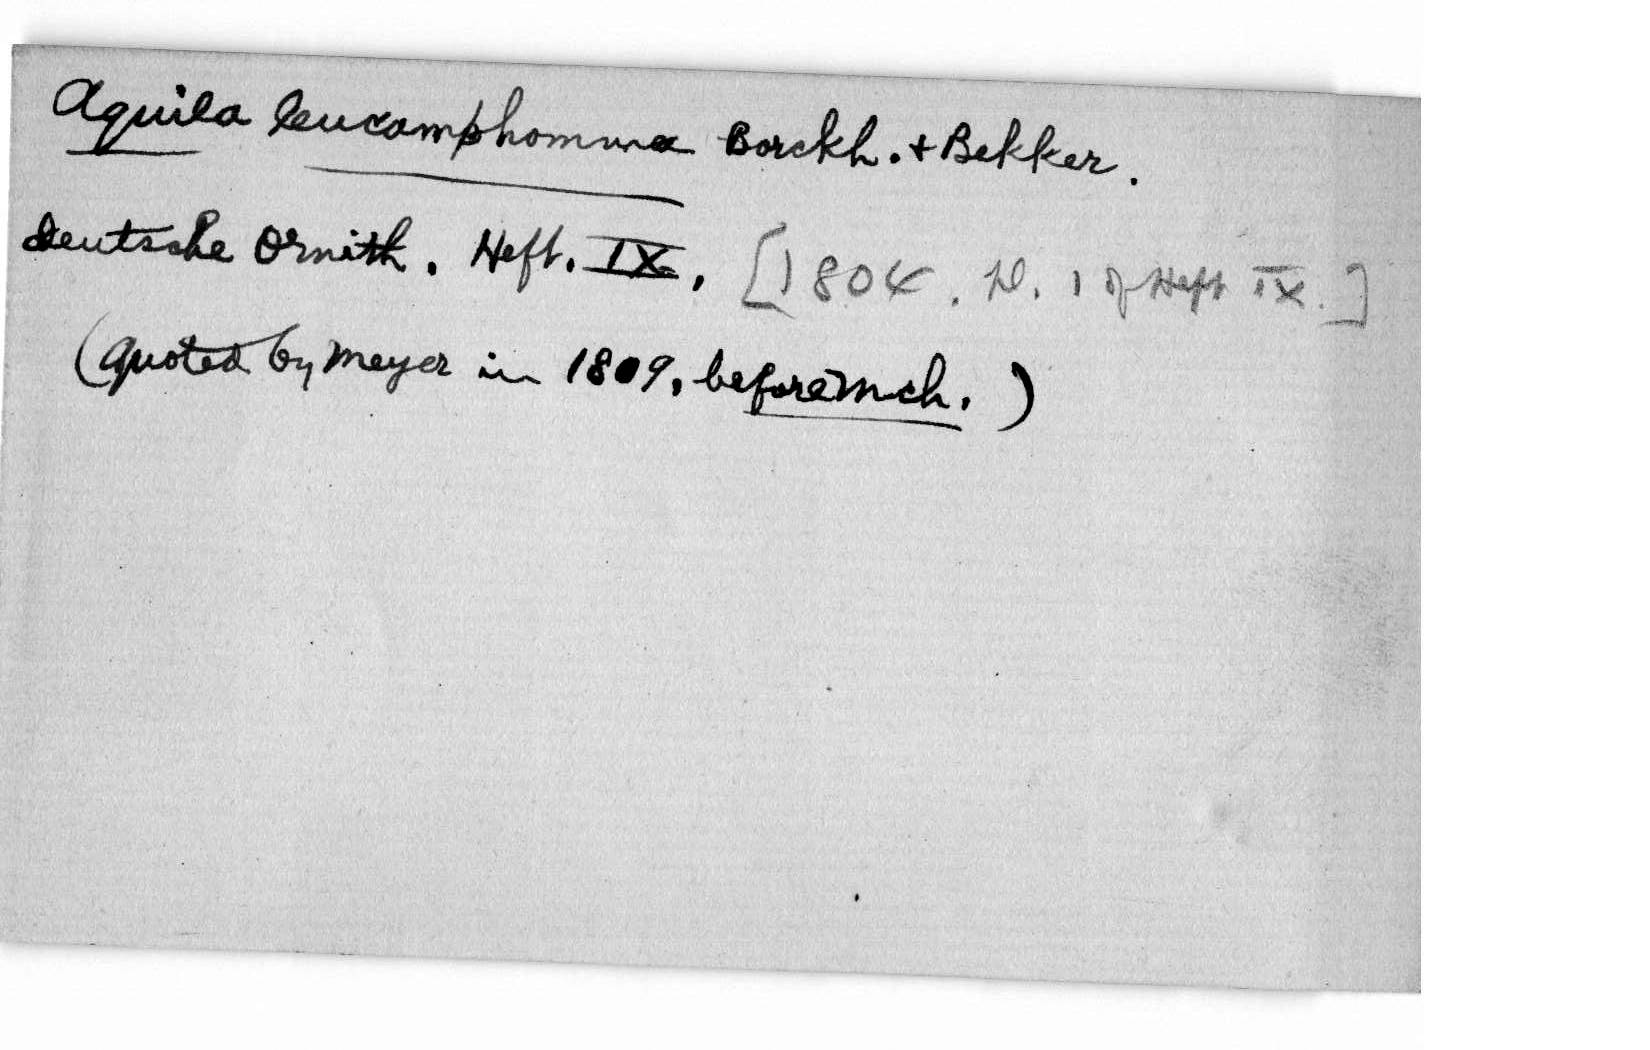 Aquila leucamphomma Borckh. + Bekker.
Deutsche Ornith. Heft. IX. [1804. pl. 1 of Heft IX.]
(quoted by Meyer in 1809, before Mch.)